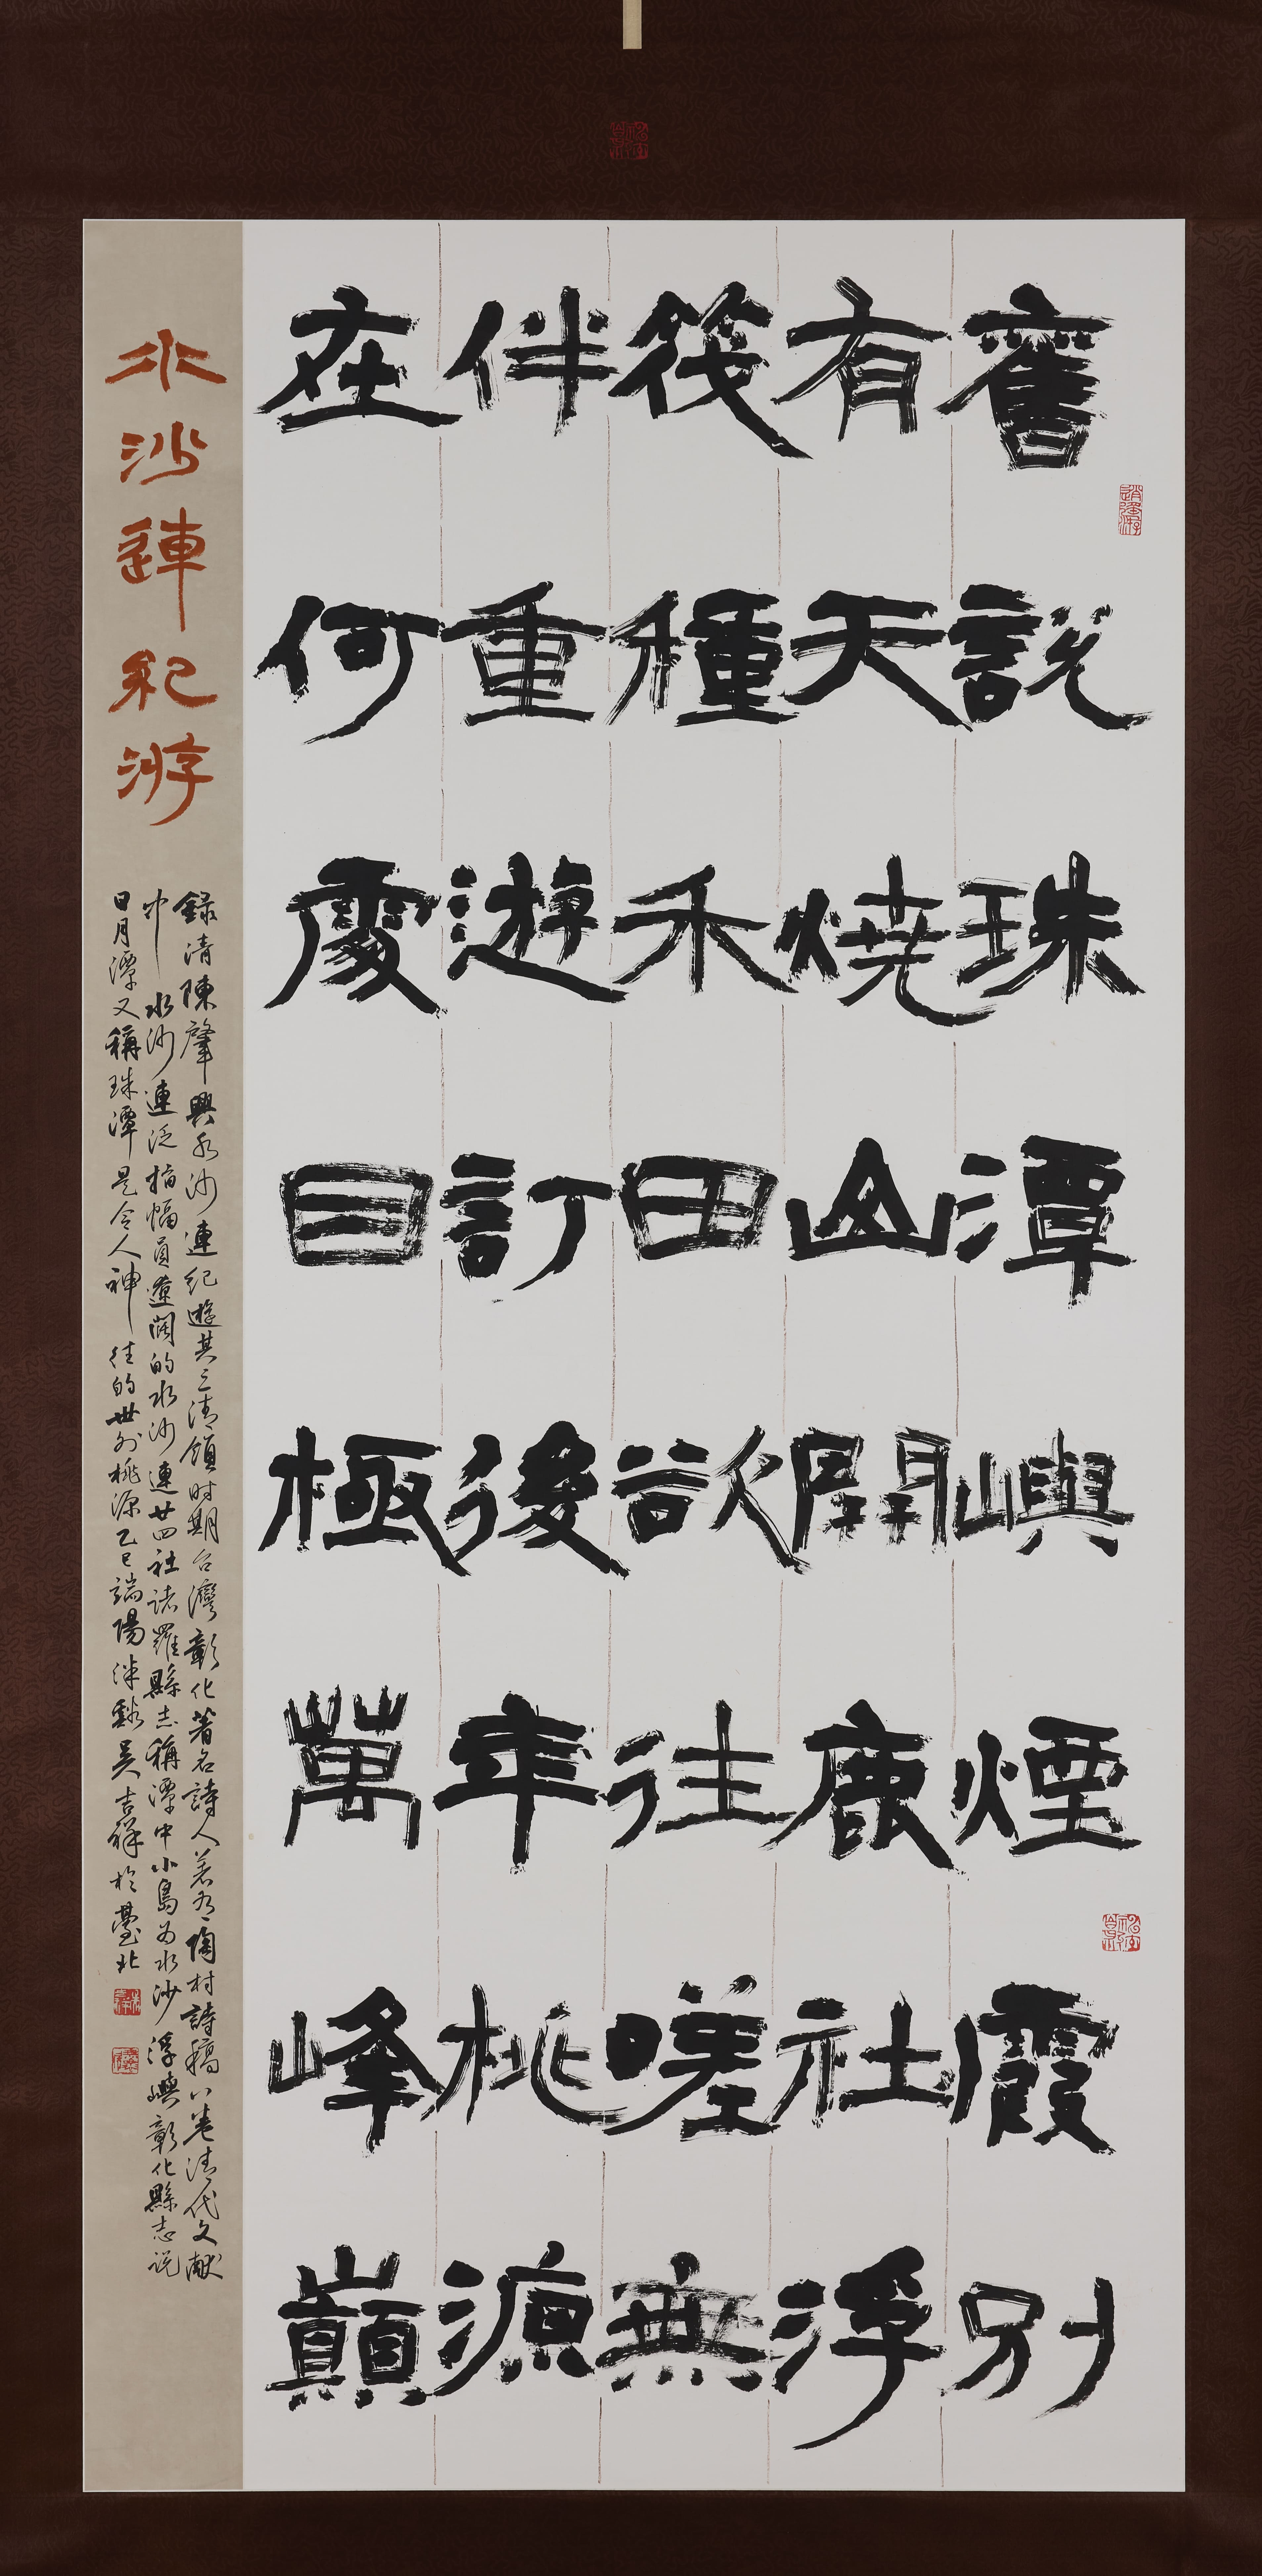 舊說珠潭嶼煙霞別
有天燒山開鹿社浮
筏種禾田欲往嗟無
伴重遊訂後年桃源
在何處目極萬峰巔
水沙連紀游
錄清陳肇興水沙連紀遊其三清領时期台灣彰化著名詩人著有陶村詩稿八卷清代文献
中水沙連泛指幅員遼闊的水沙連廿四社諸羅縣志稱潭中小島为水沙浮嶼彰化縣志说
日月潭又稱珠潭是令人神往的世外桃源乙巳端陽谿吴吉祥於臺北
逍遙游